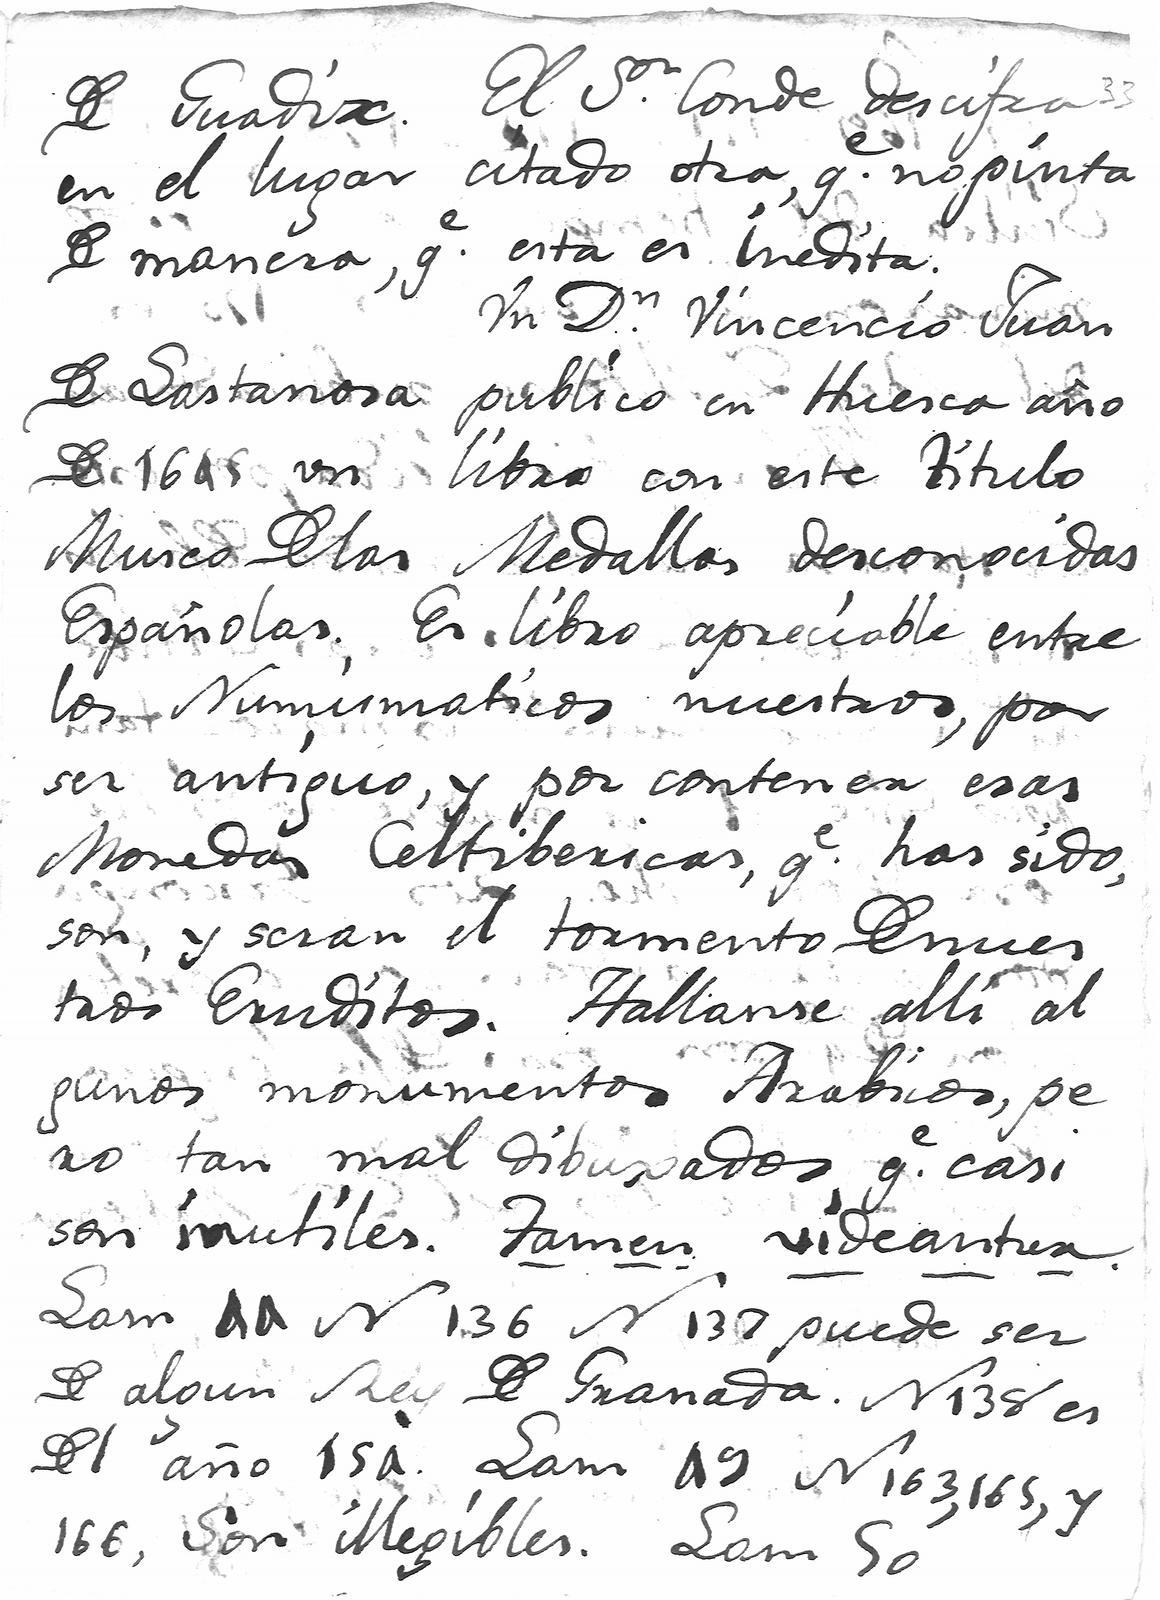 De Guadix. El S.or Conde descifra 33
en el lugar citado otra, q.e no pinta
De manera, q.e esta es inedita.
Un D.n Vincencio Juan
De Lastanosa publico en Huesca año
De 1645 un libro con este titulo
Museo De las Medallas desconocidas
Españolas. Es libro apreciable entre
los Numismaticos nuestros, por
ser antiguo, y por contener esas
Monedas Celtibericas, q.e has sido,
son, y seran el tormento De nues
tros Eruditos. Hallanse alli al
gunos monumentos Arabicos, pe
ro tan mal dibuxados q.e casi
son inutiles. Tamen videantur.
Lam 44 N 136 N 137 puede ser
De algun Rey De Granada. N 138 es
Del año 154. Lam 49 N 163, 165, y
166, Son illegibles. Lam 50